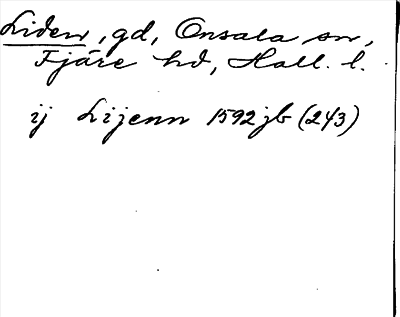 Liden, gd, Onsala sn,
Fjäre hd, Hall. l.
ij Lijenn 1592 jb (243)